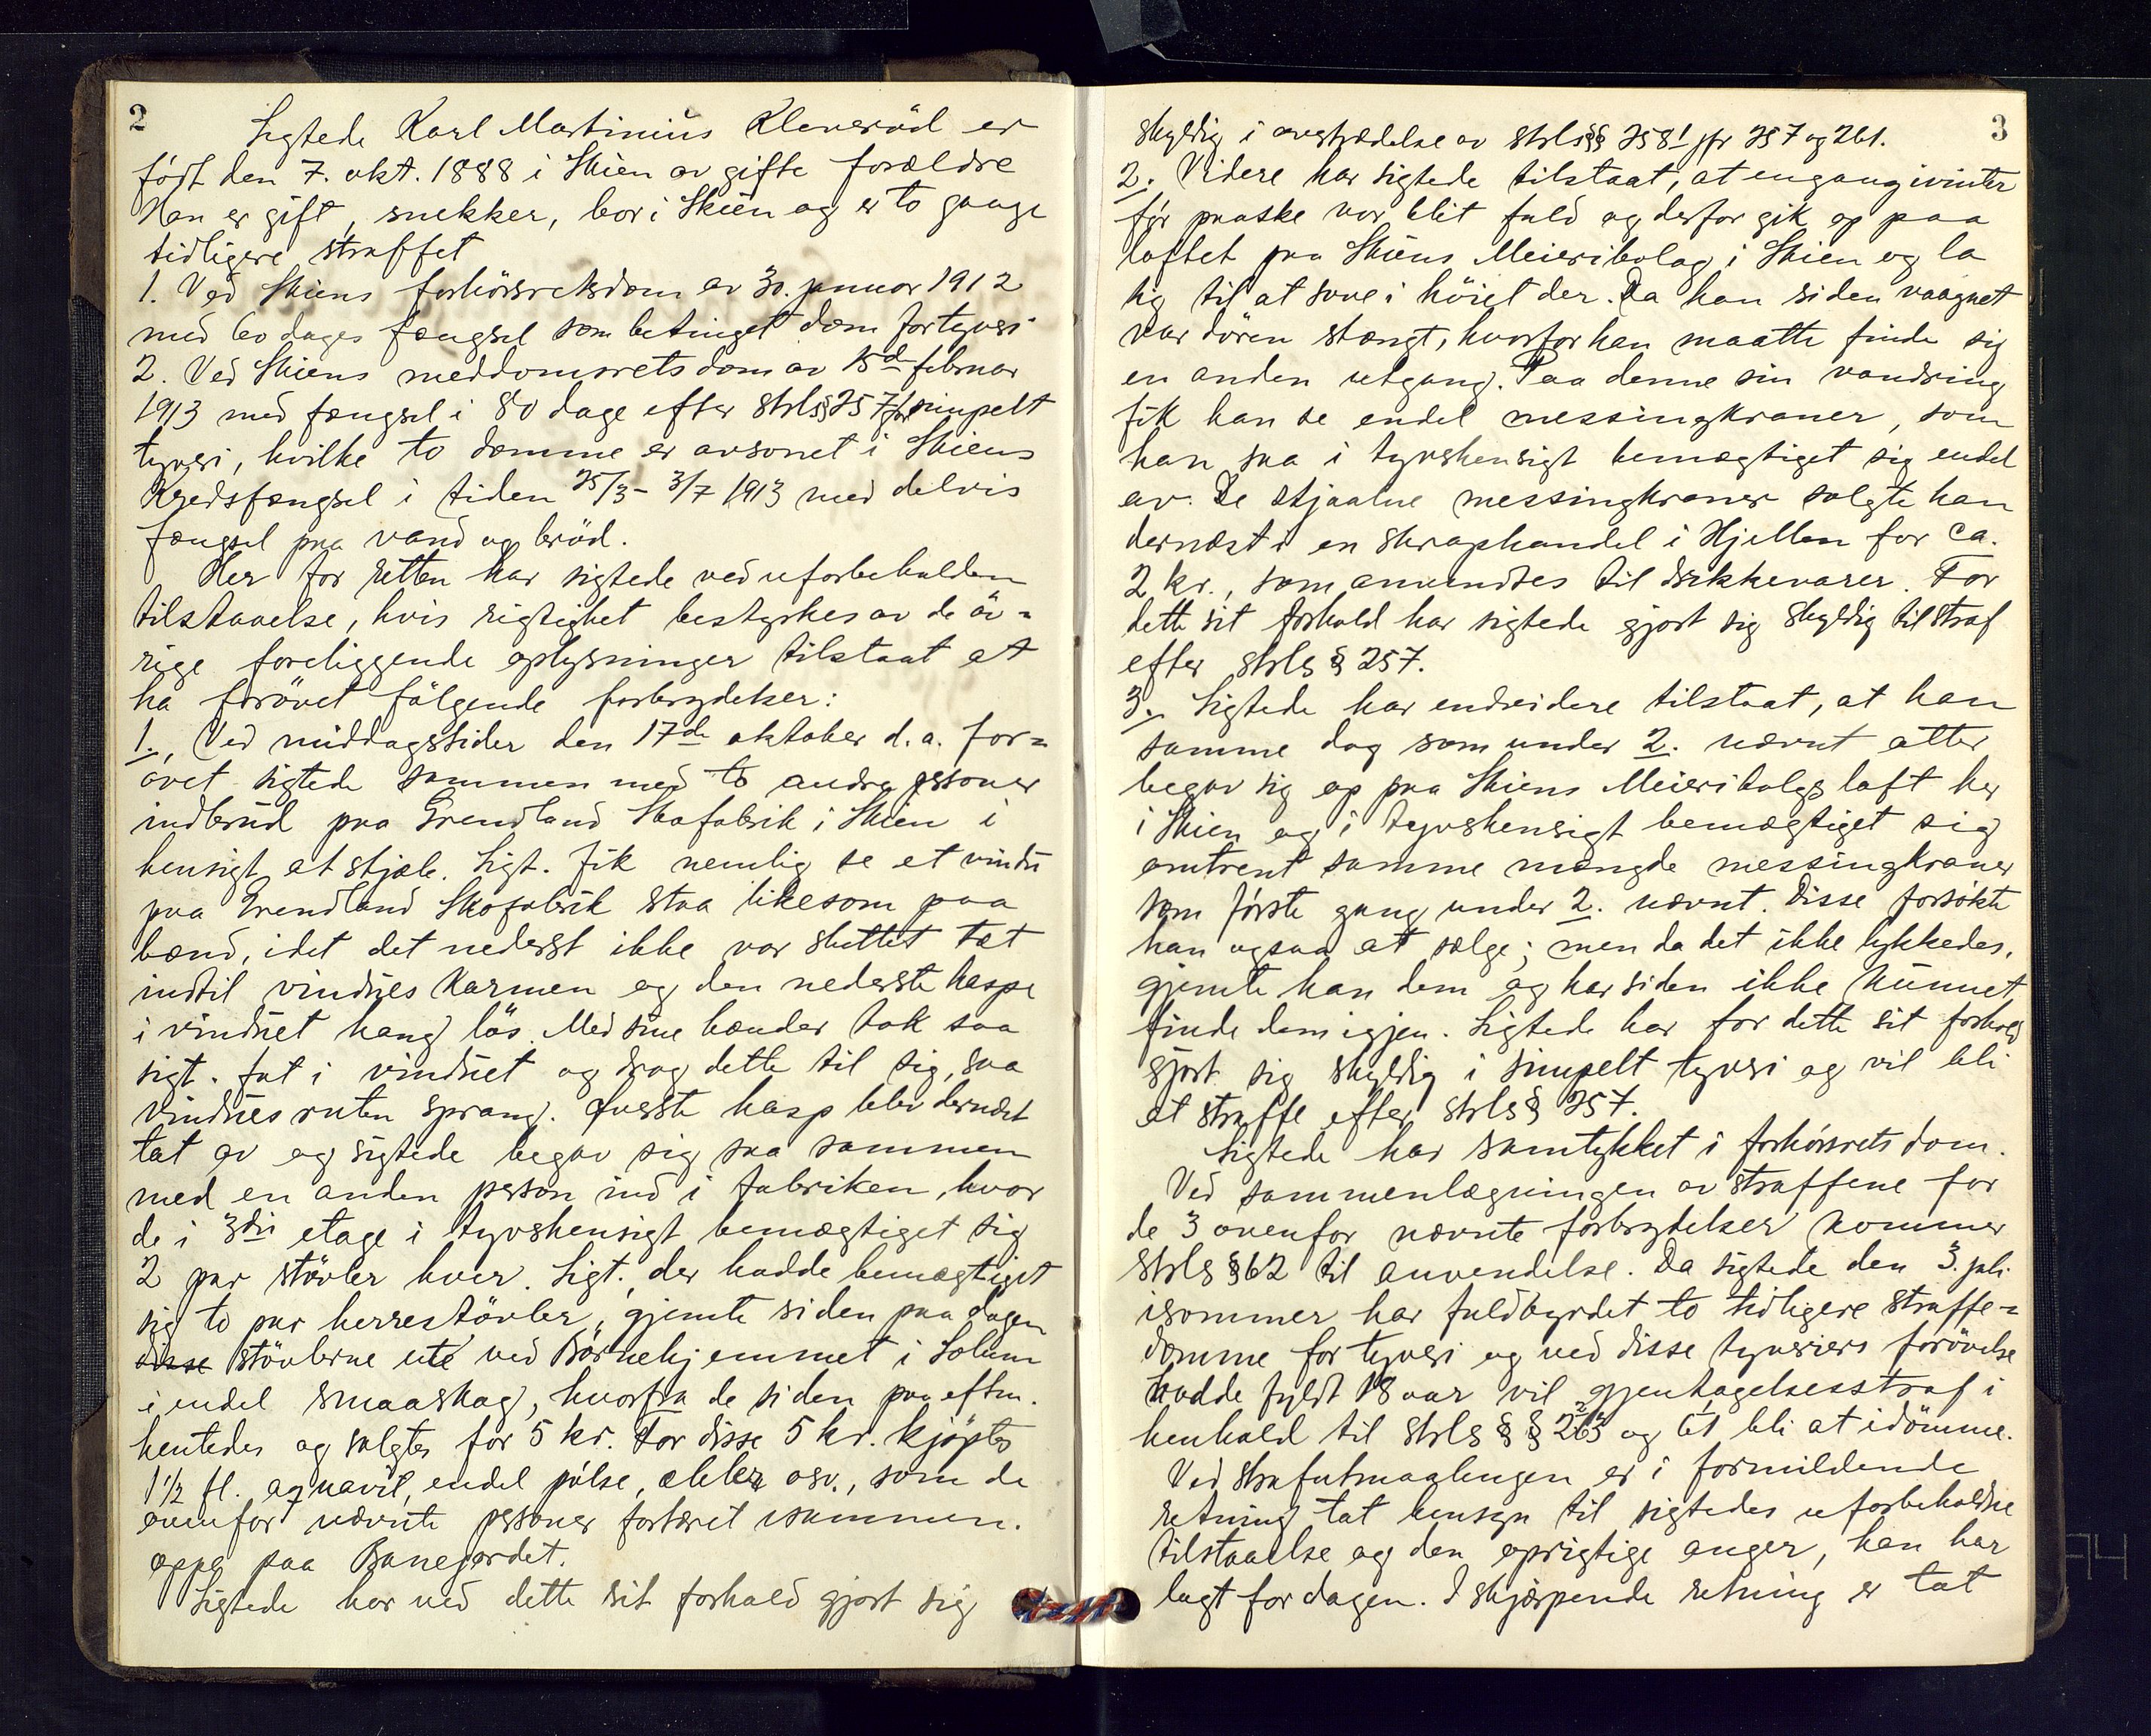 2
Sigtede Karl Martinius Kleveröd er
födt den 7. okt. 1888 i Skien av gifte forældre
Han er gift, snekker, bor i Skien og er to gange
tidligere straffet
1. Ved Skiens forhörsretsdom av 30. januar 1912
med 60 dages fængsel som betinget dom for tyveri
2. Ved Skiens meddomsretsdom av 15de februar
1913 med fængsel i 80 dage efter strls § 257 for simpelt
tyveri, hvilke to domme er avsonet i Skiens
Kredsfængsel i tiden 25/3 - 3/7 1913 med delvis
fængsel paa vand og bröd.
Her for retten har sigtede ved uforbeholden
tilstaaelse, hvis rigtighet bestyrkes av de öv-
rige foreliggende oplysninger tilstaat at
ha forövet fölgende forbrydelser:
1., Ved middagstider den 17de oktober d.a. for-
övet sigtede sammen med to andre personer
indbrud paa Grendland Skofabrik i Skien i
hensigt at stjæle. Sigt. fik nemlig se et vindu
paa Grendland Skofabrik staa likesom paa
bænd, idet det nederst ikke var sluttet tæt
indtil vindues karmen og den nederste haspe
i vinduet hang lös. Med sine hænder tok saa
sigt. fat i vinduet og drog dette til sig, saa
vindues ruten sprang. Överste hasp blev dernæst
tat av og sigtede begav sig saa sammen
med en anden person ind i fabriken, hvor
de i 3die etage i tyvshensigt bemægtiget sig
2 par stövler hver. Sigt., der hadde bemægtiget
sig to par herrestövler, gjemte siden paa dagen
disse stövlerne ute ved Börnehjemmet i Solum
i endel smaaskog, hvorfra de siden paa eftm.
hentedes og solgtes for 5 kr. For disse 5 kr. kjöptes
1 1/2 fl. aqvavit, endel pölse, æbler osv., som de
ovenfor nævnte personer fortæret isammen.
oppe paa Banejordet.
Sigtede har ved dette sit forhold gjort sig
3
skyldig i overtrædelse av strls §§ 258¹ jfr 257 og 261.
2. Videre har sigtede tilstaat, at engang ivinter
för paaske var blit fuld og derfor gik op paa
loftet paa Skiens Meieribolag i Skien og la
sig til at sove i höiet der. Da han siden vaagnet
var dören stængt, hvorfor han maatte finde sig
en anden utgang. Paa denne sin vandring
fik han se endel messingkraner, som
han saa i tyvshensigt bemægtiget sig endel
av. De stjaalne messingkraner solgte han
dernæst i en skraphandel i Hjellen for ca.
2 kr., som anvendtes til drikkevarer. For
dette sit forhold har sigtede gjort sig skyldig til straf
efter strls § 257.
3. Sigtede har endvidere tilstaat, at han
samme dag som under 2. nævnt atter
begav sig op paa Skiens Meieribolgs loft her
i Skien og i tyvshensigt bemægtiget sig
omtrent samme mængde messingkraner
som förste gang under 2. nævnt. Disse forsökte
han ogsaa at sælge; men da det ikke lykkedes,
gjemte han dem og har siden ikke kunnet
finde dem igjen. Sigtede har for dette sit forhold
gjort sig skyldig i simpelt tyveri og vil bli
at straffe efter strls § 257.
Sigtede har samtykket i forhörsrets dom.
Ved sammenlægningen av straffene for
de 3 ovenfor nævnte forbrydelser kommer
strls § 62 til anvendelse. Da sigtede den 3. juli
isommer har fuldbyrdet to tidligere straffe-
domme for tyveri og ved disse tyveriers forövelse
hadde fyldt 18 aar vil gjentagelsesstraf i
henhold til strls §§ 263 og 61 bli at idömme.
Ved strafutmaalingen er i formildende
retning tat hensyn til sigtedes uforbeholdne
tilstaaelse og den oprigtige anger, han har
lagt for dagen. I skjærpende retning er tat